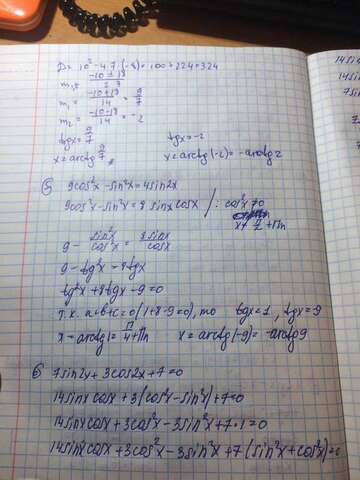 D = 10² - 4·7·(-8) = 100 + 224 = 324
m₁,₂ = (-10 ± 18)/(2·7)
m₁ = (-10+18)/14 = 8/7
m₂ = (-10-18)/14 = -2
tgx = 8/7 tgx = -2
x = arctg 8/7 x = arctg(-2) = -arctg2
5) 9cos²x - sin²x = 4sin2x
9cos²x - sin²x = 8 sinx cosx /: cos²x ≠ 0
x ≠ π/2 + πn
9 - sin²x/cos²x = 8sinx/cosx
9 - tg²x = 8tgx
tg²x + 8tgx - 9 = 0
т.к. a+b+c=0 (1+8-9=0), то tgx = 1, tgx = 9
x = arctg1 = π/4 + πn x = arctg(-9) = -arctg9
6) 7sin2x + 3cos2x + 7 = 0
14sinx cosx + 3(cos²x - sin²x) + 7 = 0
14sinx cosx + 3cos²x - 3sin²x + 7·1 = 0
14sinx cosx + 3cos²x - 3sin²x + 7(sin²x + cos²x) = 0
14sin
14si
7sin